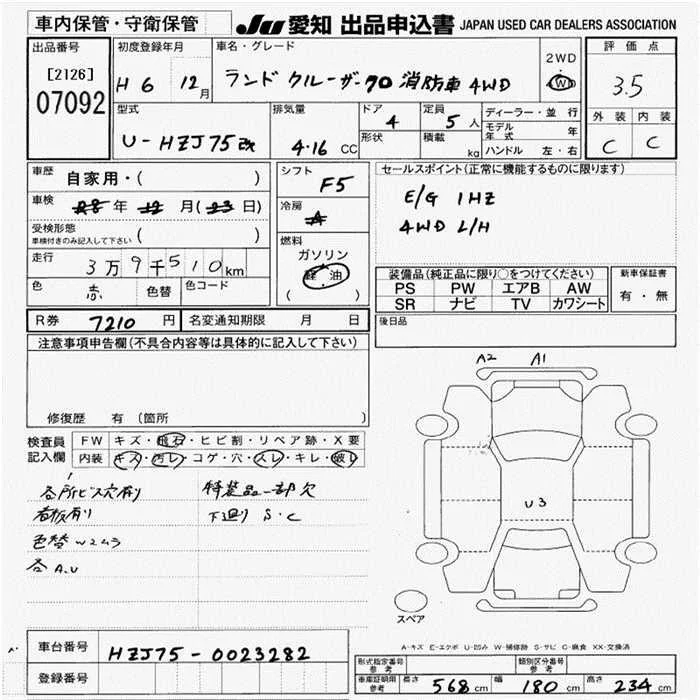 車内保管・守衛保管
JU 愛知 出品申込書 JAPAN USED CAR DEALERS ASSOCIATION
出品番号
[2126]
07092
初度登録年月
H 6 12月
車名・グレード
ランドクルーザー70 消防車 4WD
2WD
4WD
評価点
3.5
外装 内装
C C
型式
U-HZJ75改
排気量
4.16 CC
ドア
4
形状
定員
5人
積載
kg
ディーラー・並行
モデル年式 年
ハンドル 左・右
車歴
自家用・( )
車検
28年12月(23日)
受検形態
車検付きのみ記入して下さい ( )
走行
3万9千510km
色
赤
色替
色コード
シフト
F5
冷房
A
燃料
ガソリン
軽油
( )
セールスポイント(正常に機能するものに限ります)
E/G 1HZ
4WD L/H
装備品(純正品に限り○をつけてください)
PS PW エアB AW
SR ナビ TV カワシート
新車保証書
有・無
R券 7210円
名変通知期限 月 日
後日品
注意事項申告欄(不具合内容等は具体的に記入して下さい)
修復歴 有 (箇所
検査員記入欄
FW キズ・飛石・ヒビ割・リペア跡・X要
内装 キズ・汚レ・コゲ・穴・スレ・キレ・破レ
各所ビス穴有り
看板有り
色替 W2ムラ
各 A.U
特装品一部欠
下廻り S・C
A2 A1
U3
スペア
A-キズ E-エクボ U-凹み W-補修跡 S-サビ C-腐食 XX-交換済
車台番号
HZJ75-0023282
登録番号
形式指定番号
参考
類別区分番号
参考
車庫証明用
参考
長さ 568cm 幅 180cm 高さ 234cm